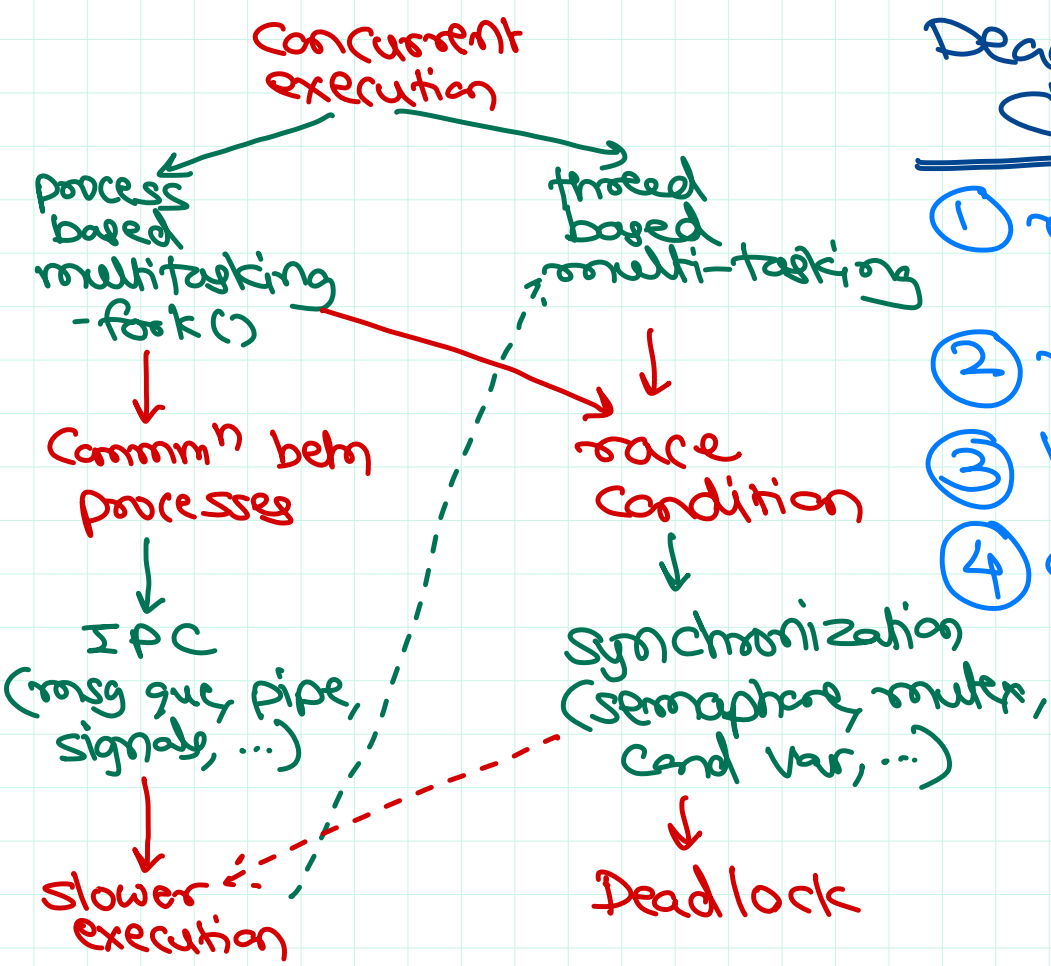 Concurrent
execution
process
based
multitasking
- fork()
thread
based
multi-tasking
Commⁿ betn
processes
race
condition
IPC
(msg que, pipe,
signals, ...)
synchronization
(semaphore, mutex,
cond var, ...)
slower
execution
Deadlock
Dea
1
2
3
4